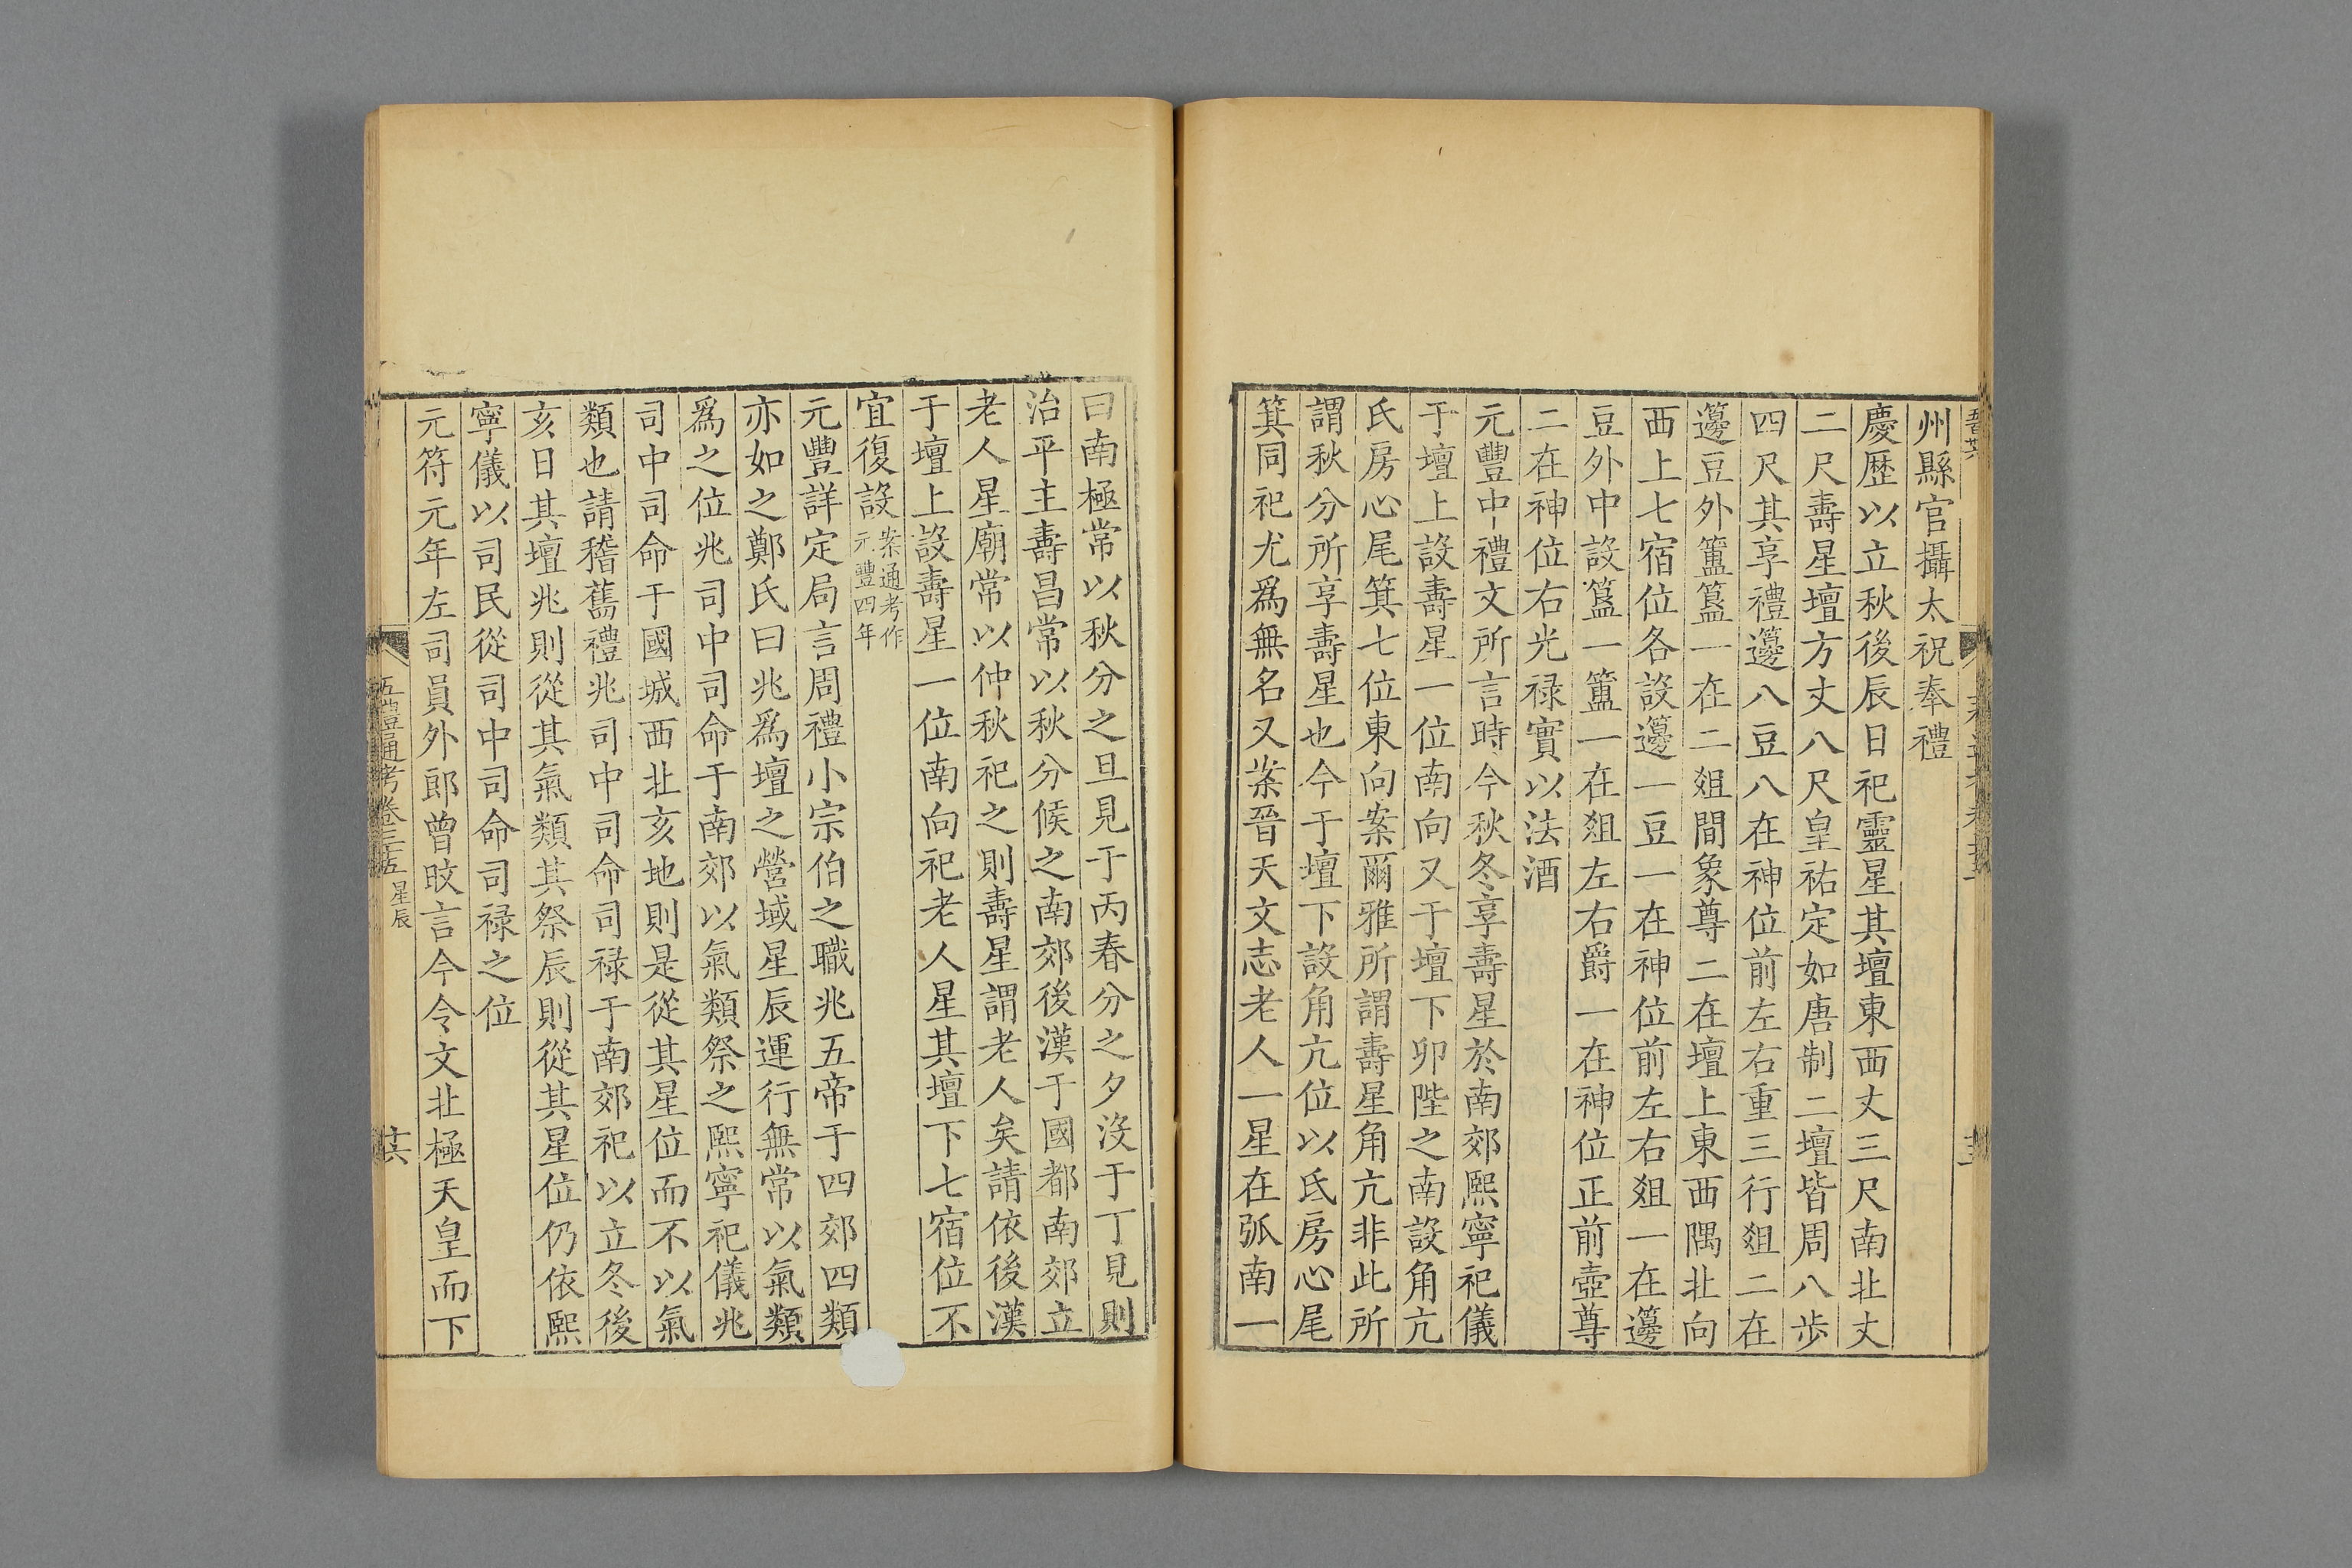 州縣官攝太祝奉禮
慶歷以立秋後辰日祀靈星其壇東西丈三尺南北丈
二尺壽星壇方丈八尺皇祐定如唐制二壇皆周八步
四尺其享禮籩八豆八在神位前左右重三行俎二在
籩豆外簠簋一在二俎間象尊二在壇上東西隅北向
西上七宿位各設籩一豆一在神位前左右俎一在籩
豆外中設簋一簠一在俎左右爵一在神位正前壺尊
二在神位右光祿實以法酒
元豐中禮文所言時令秋冬享壽星於南郊熙寧祀儀
于壇上設壽星一位南向又于壇下卯陛之南設角亢
氐房心尾箕七位東向案爾雅所謂壽星角亢非此所
謂秋分所享壽星也今于壇下設角亢位以氐房心尾
箕同祀尤爲無名又案晉天文志老人一星在弧南一
曰南極常以秋分之旦見于丙春分之夕沒于丁見則
治平主壽昌常以秋分候之南郊後漢于國都南郊立
老人星廟常以仲秋祀之則壽星謂老人矣請依後漢
于壇上設壽星一位南向祀老人星其壇下七宿位不
宜復設案通考作元豐四年
元豐詳定局言周禮小宗伯之職兆五帝于四郊四類
亦如之鄭氏曰兆爲壇之營域星辰運行無常以氣類
爲之位兆司中司命于南郊以氣類祭之熙寧祀儀兆
司中司命于國城西北亥地則是從其星位而不以氣
類也請稽舊禮兆司中司命司祿于南郊祀以立冬後
亥日其壇兆則從其氣類其祭辰則從其星位仍依熙
寧儀以司民從司中司命司祿之位
元符元年左司員外郎曾旼言今令文北極天皇而下
五禮通考卷三十五 星辰